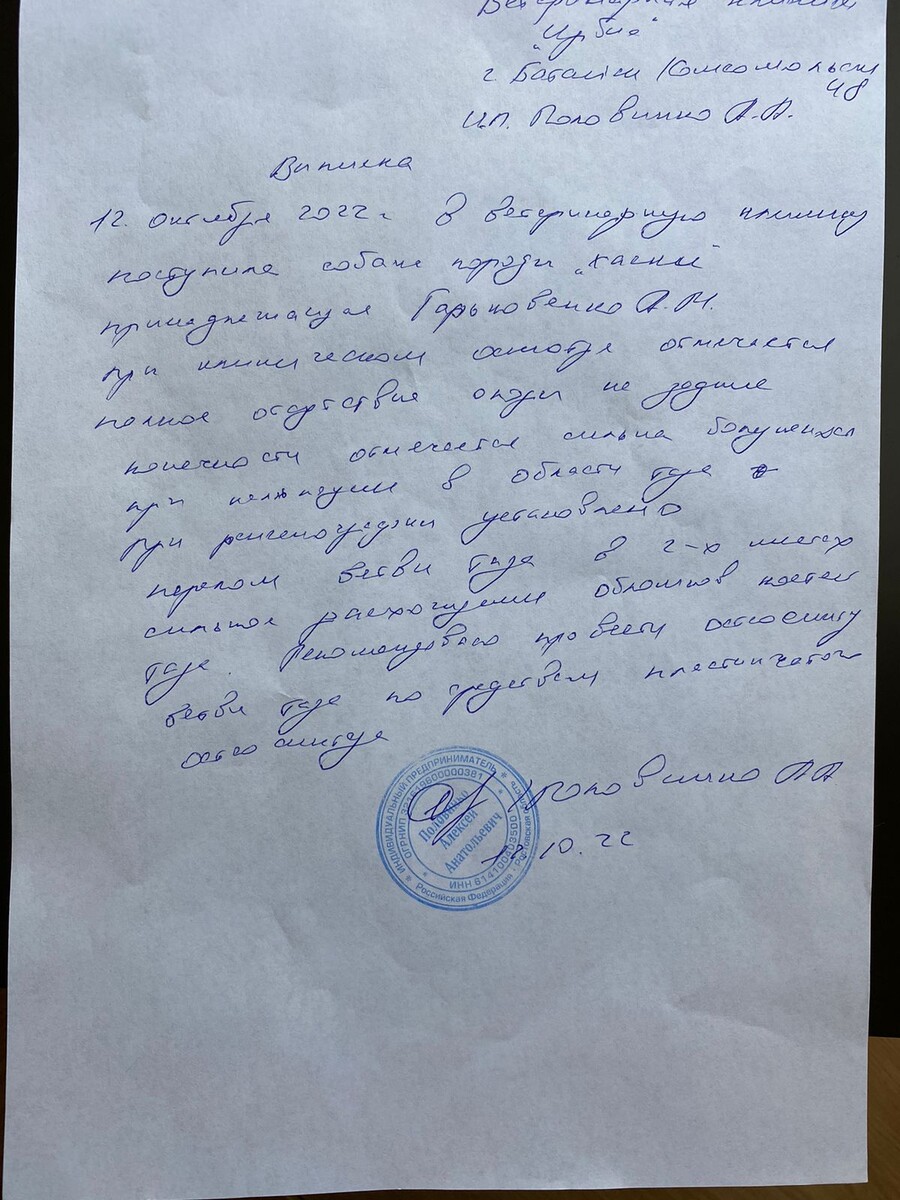 Ветеринарная клиника
"Ирбис"
г. Батайск Комсомольская
48
И.П. Половинко А.А.
Выписка
12. октября 2022г. В ветеринарную клинику
поступила собака породы "хаски"
принадлежащая Гарьковенко А.М.
При клиническом осмотре отмечается
полное отсутствие опоры на задние
конечности отмечается сильна
при пальпации в области таза
При установлено
перелом ветви таза в 2-х местах
сильное расхождении обломков костей
таза. Рекомендовано провести
ветви таза по средствам пластинчатого
остеосинтеза
Половинко А А
12.10.22
ИНДИВИДУАЛЬНЫЙ ПРЕДПРИНИМАТЕЛЬ
ОГРНИП
Половинко
Алексей
Анатольевич
ИНН 614100403500
Российская Федерация • Ростовская область